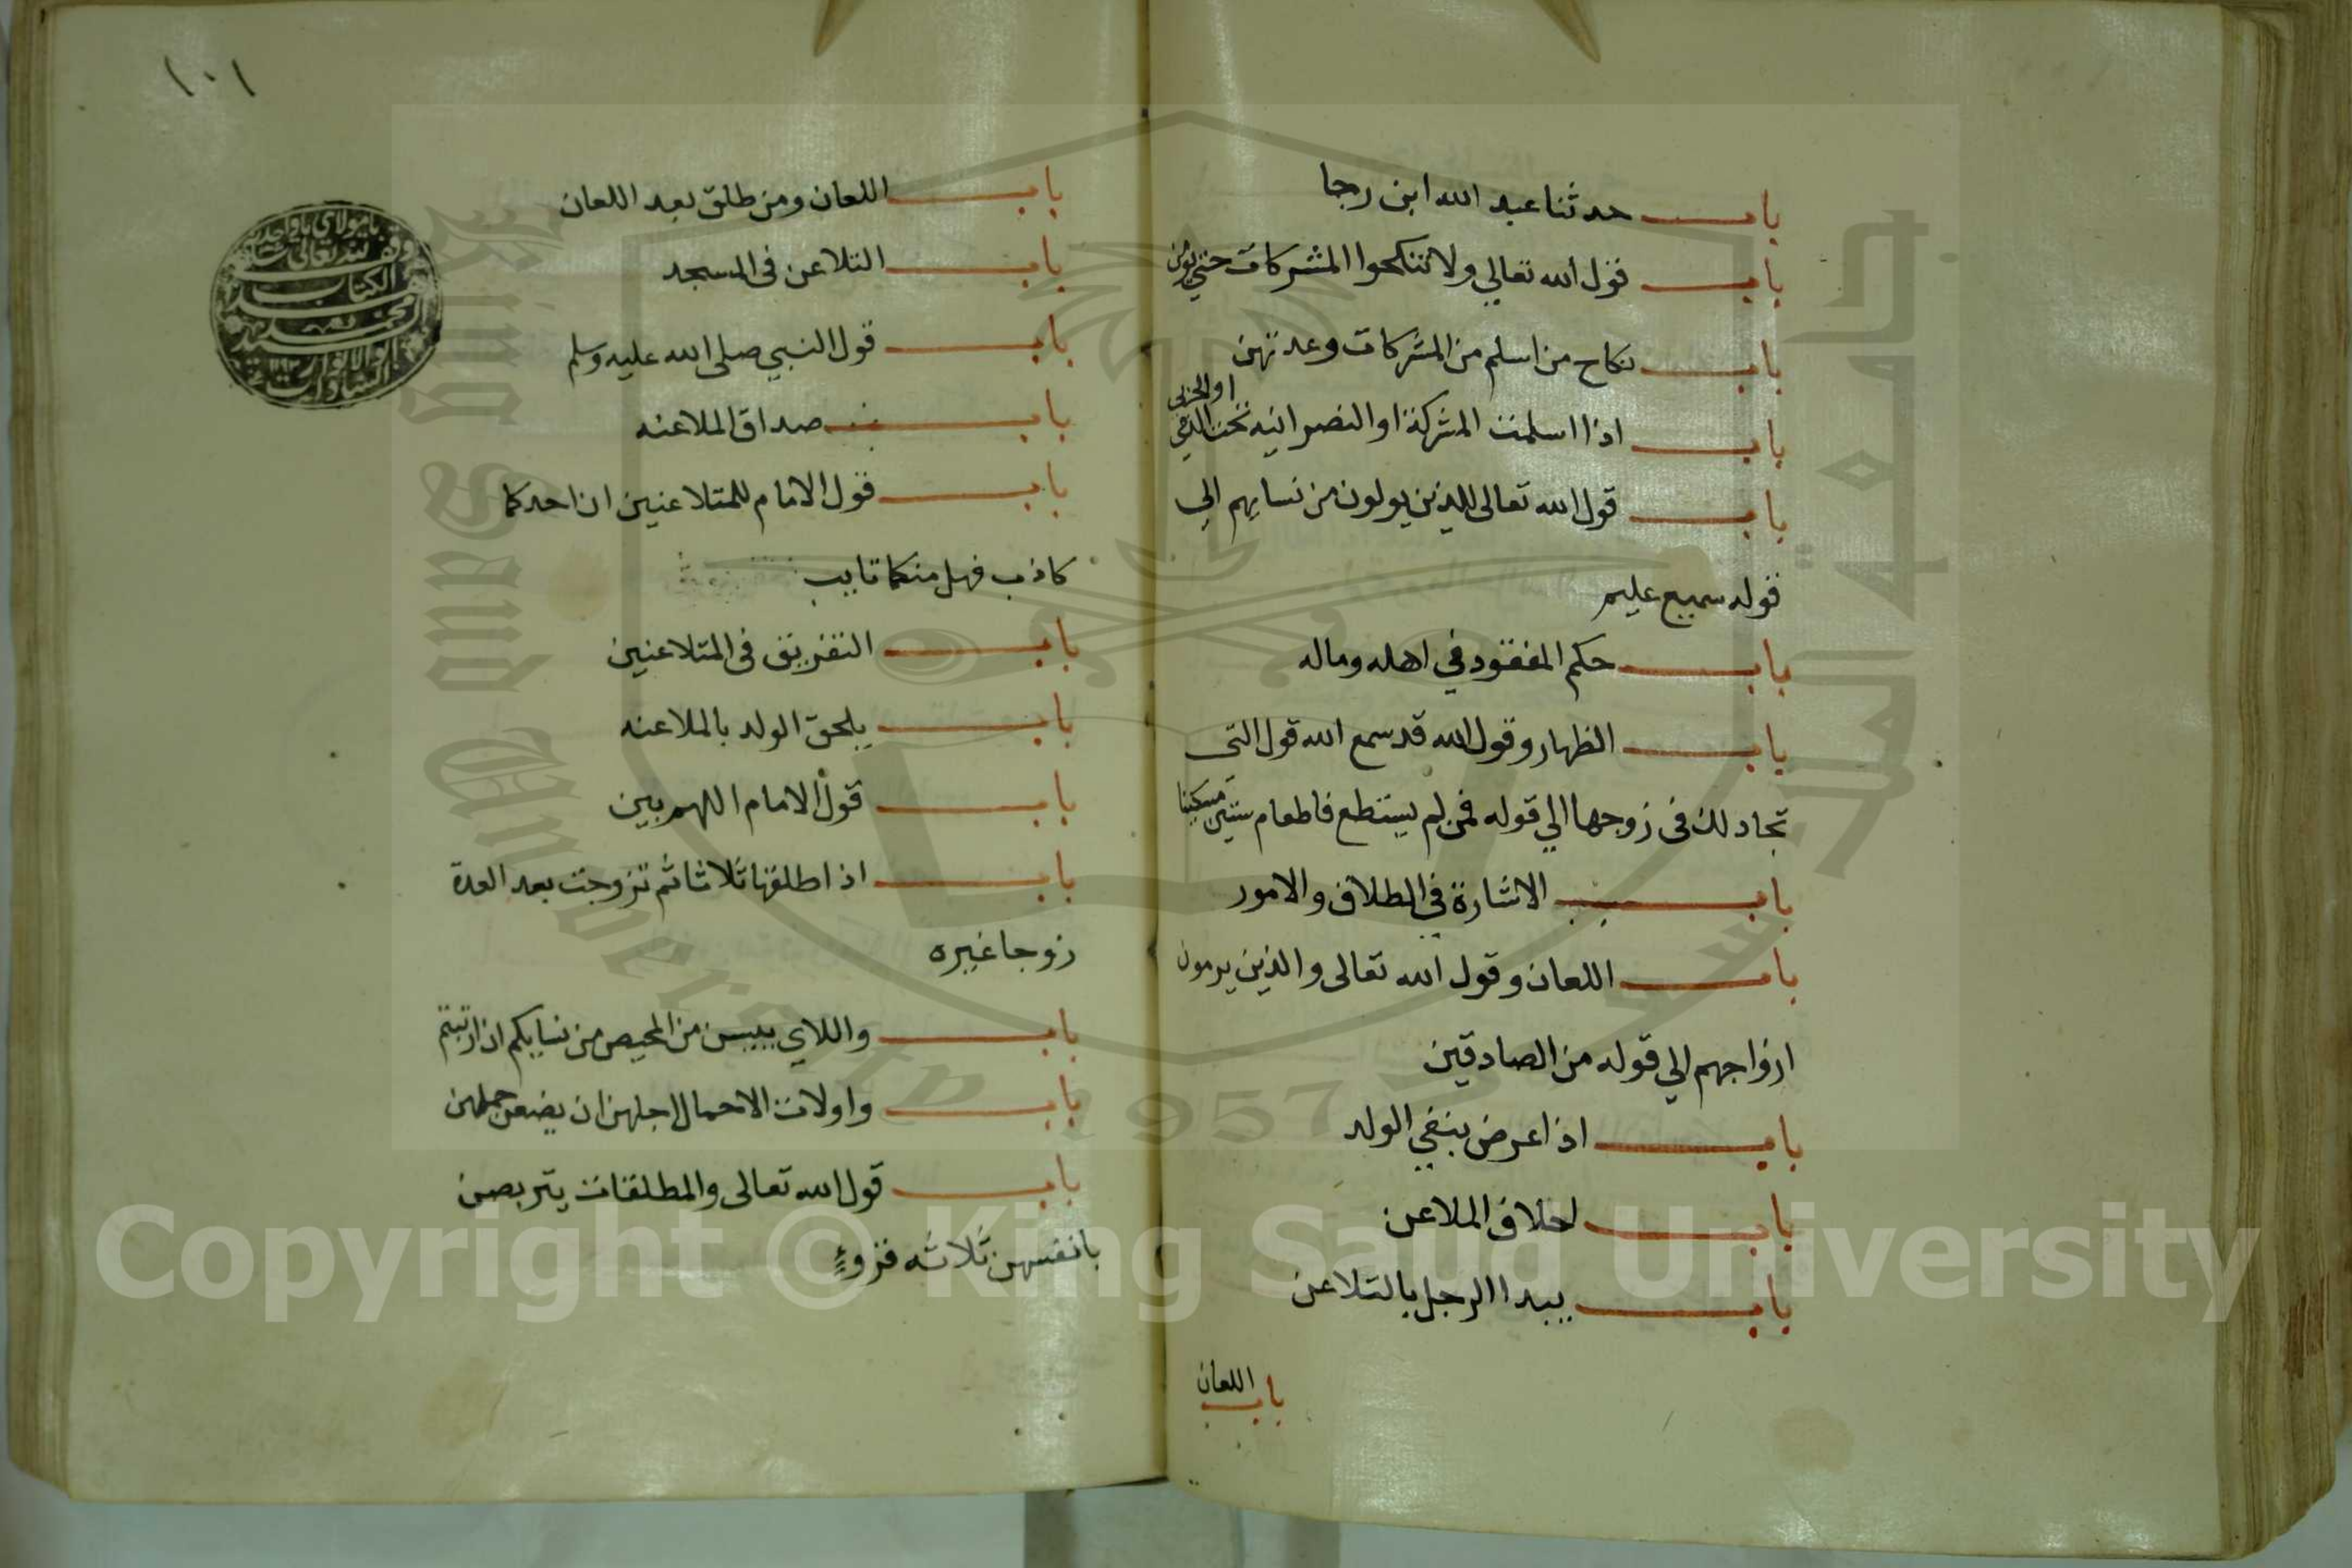 باب حدثنا عبد الله ابن رجا
باب قول الله تعالي ولا تنكحوا المشركات حتي يؤمن
باب نكاح من اسلم من المشركات وعدتهن
باب اذا اسلمت المشركة او النصرانيه تحت الذمي او الحربي
باب قول الله تعالى للذين يولون من نسايهم الي
قوله سميع عليم
باب حكم المفقود في اهله وماله
باب الظهار وقول الله قد سمع الله قول التى
تجادلك فى زوجها الي قوله فمن لم يستطع فاطعام ستين مسكينا
باب الاشارة في الطلاق والامور
باب اللعان وقول الله تعالى والذين يرمون
ازواجهم الي قوله من الصادقين
باب اذا عرض بنفي الولد
باب احلاف الملاعن
باب يبدا الرجل بالتلاعن
باب اللعان
١٠١
باب اللعان ومن طلق بعد اللعان
باب التلاعن فى المسجد
باب قول النبي صلى الله عليه وسلم
باب صداق الملاعنه
باب قول الامام للمتلاعنين ان احدكما
كاذب فهل منكما تايب
باب التفريق فى المتلاعنين
باب يلحق الولد بالملاعنه
باب قول الامام اللهم بين
باب اذا طلقها ثلاثا ثم تزوجت بعد العدة
زوجا غيره
باب واللاي ييسن من المحيص من نسايكم ان ارتبتم
باب واولات الاحمال اجلهن ان يضعن حملهن
باب قول الله تعالى والمطلقات يتربصن
بانفسهن ثلاثه قروء
وقف لله تعالى
الكتاب
King Saud University
جامعة الملك سعود
1957
Copyright © King Saud University